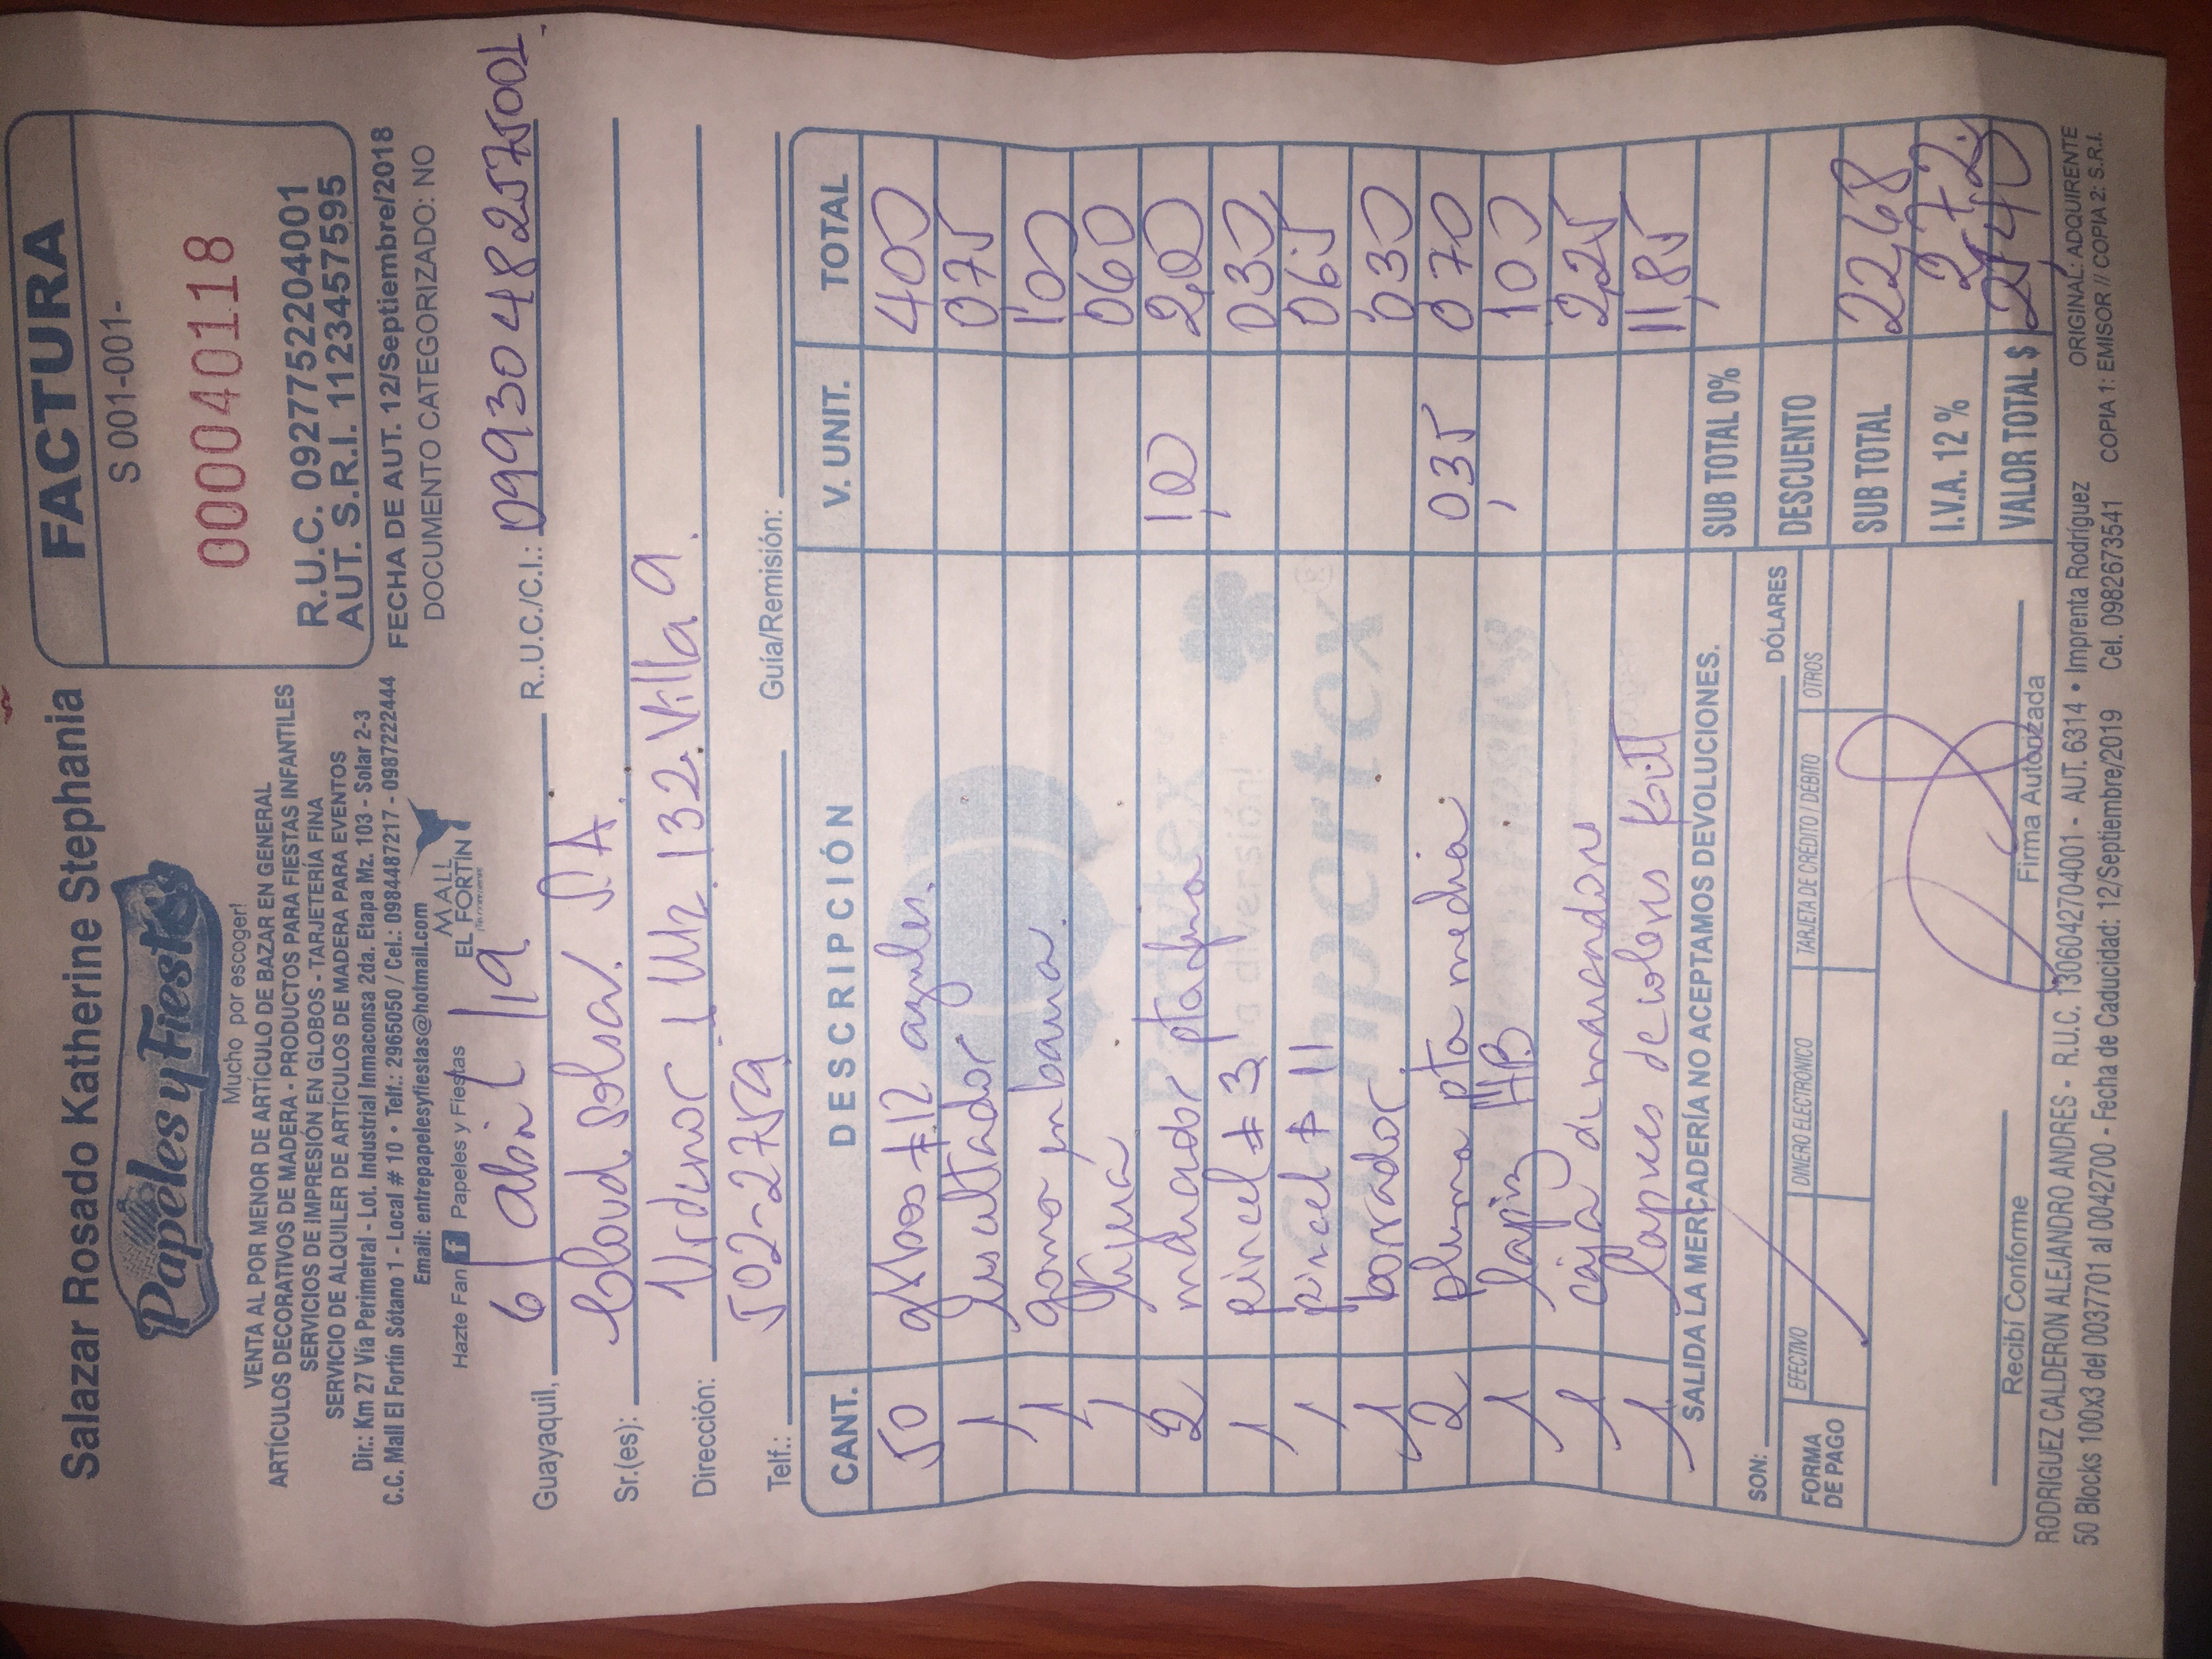 Salazar Rosado Katherine Stephania
Papeles y Fiestas
Mucho por escoger!
VENTA AL POR MENOR DE ARTÍCULO DE BAZAR EN GENERAL
ARTÍCULOS DECORATIVOS DE MADERA - PRODUCTOS PARA FIESTAS INFANTILES
SERVICIOS DE IMPRESIÓN EN GLOBOS - TARJETERÍA FINA
SERVICIO DE ALQUILER DE ARTÍCULOS DE MADERA PARA EVENTOS
Dir.: Km 27 Vía Perimetral - Lot. Industrial Inmaconsa 2da. Etapa Mz. 103 - Solar 2-3
C.C. Mall El Fortín Sótano 1 - Local # 10 • Telf.: 2965050 / Cel.: 0984487217 - 0987222444
Email: entrepapelesyfiestas@hotmail.com
Hazte Fan f Papeles y Fiestas
MALL EL FORTÍN
FACTURA
S 001-001-
000040118
R.U.C. 0927752204001
AUT. S.R.I. 1123457595
FECHA DE AUT. 12/Septiembre/2018
DOCUMENTO CATEGORIZADO: NO
Guayaquil, 6/abril/19 R.U.C./C.I.: 0993048257001
Sr.(es): Cloud Solsal S.A.
Dirección: Urdenor 1 Mz. 132. Villa 9.
Telf.: 502-2759 Guía/Remisión:
CANT. DESCRIPCIÓN V. UNIT. TOTAL
50 globos #12 azules. 400
1 resaltador 075
1 goma en barra. 100
1 tijera 060
2 marcador pta fina 1,00 2,00
1 pincel #3 030
1 pincel # 11 065
1 borrador 030
2 pluma pta media 035 070
1 lapiz HB 100
1 caja de marcadores 2,25
1 lapices de colores 11,85
SALIDA LA MERCADERÍA NO ACEPTAMOS DEVOLUCIONES.
SON: DÓLARES
FORMA DE PAGO EFECTIVO DINERO ELECTRÓNICO TARJETA DE CREDITO / DEBITO OTROS
SUB TOTAL 0%
DESCUENTO
SUB TOTAL 22,68
I.V.A. 12 % 2,72
VALOR TOTAL $ 25,40
Recibí Conforme Firma Autorizada
RODRIGUEZ CALDERON ALEJANDRO ANDRES - R.U.C. 1306042704001 - AUT. 6314 • Imprenta Rodríguez ORIGINAL: ADQUIRENTE
50 Blocks 100x3 del 0037701 al 0042700 - Fecha de Caducidad: 12/Septiembre/2019 Cel. 0982673541 COPIA 1: EMISOR // COPIA 2: S.R.I.